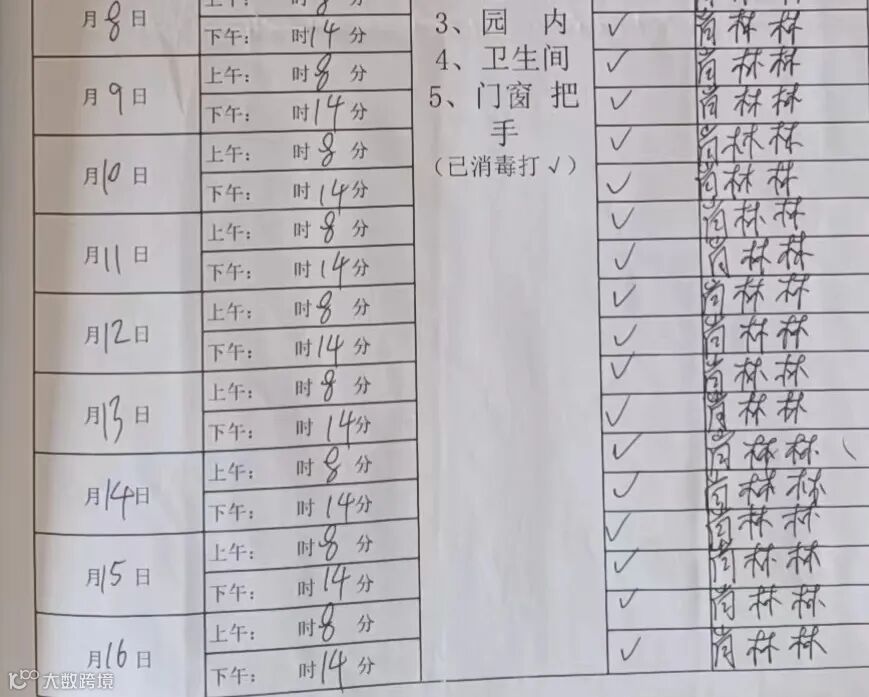 时8分 林林
月8日 下午: 时14分 3、园 内 ✓ 肖林林
月9日 上午: 时8分 4、卫生间 ✓ 肖林林
下午: 时14分 5、门窗 把 ✓ 肖林林
月10日 上午: 时8分 手 ✓ 肖林林
下午: 时14分 (已消毒打√) ✓ 肖林林
月11日 上午: 时8分 ✓ 肖林林
下午: 时14分 ✓ 肖林林
月12日 上午: 时8分 ✓ 肖林林
下午: 时14分 ✓ 肖林林
月13日 上午: 时8分 ✓ 肖林林
下午: 时14分 ✓ 肖林林
月14日 上午: 时8分 ✓ 肖林林
下午: 时14分 ✓ 肖林林
月15日 上午: 时8分 ✓ 肖林林
下午: 时14分 ✓ 肖林林
月16日 上午: 时8分 ✓ 肖林林
下午: 时14分 ✓ 肖林林
大数跨境